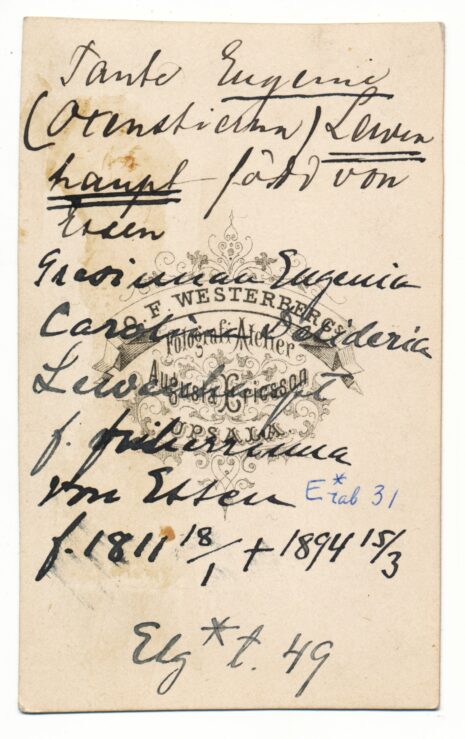 Tante Eugenie
(Oxenstierna) Lewen
haupt född von
Essen
Grevinnan Eugenia
Carolina Desideria
Lewenhaupt
f. friherrinna
von Essen
E*rab 31
f. 1811 18/1 + 1894 15/3
Elg * t. 49
O. F. WESTERBERGS
Fotografi-Atelier
Augusta Ericsson
UPSALA.